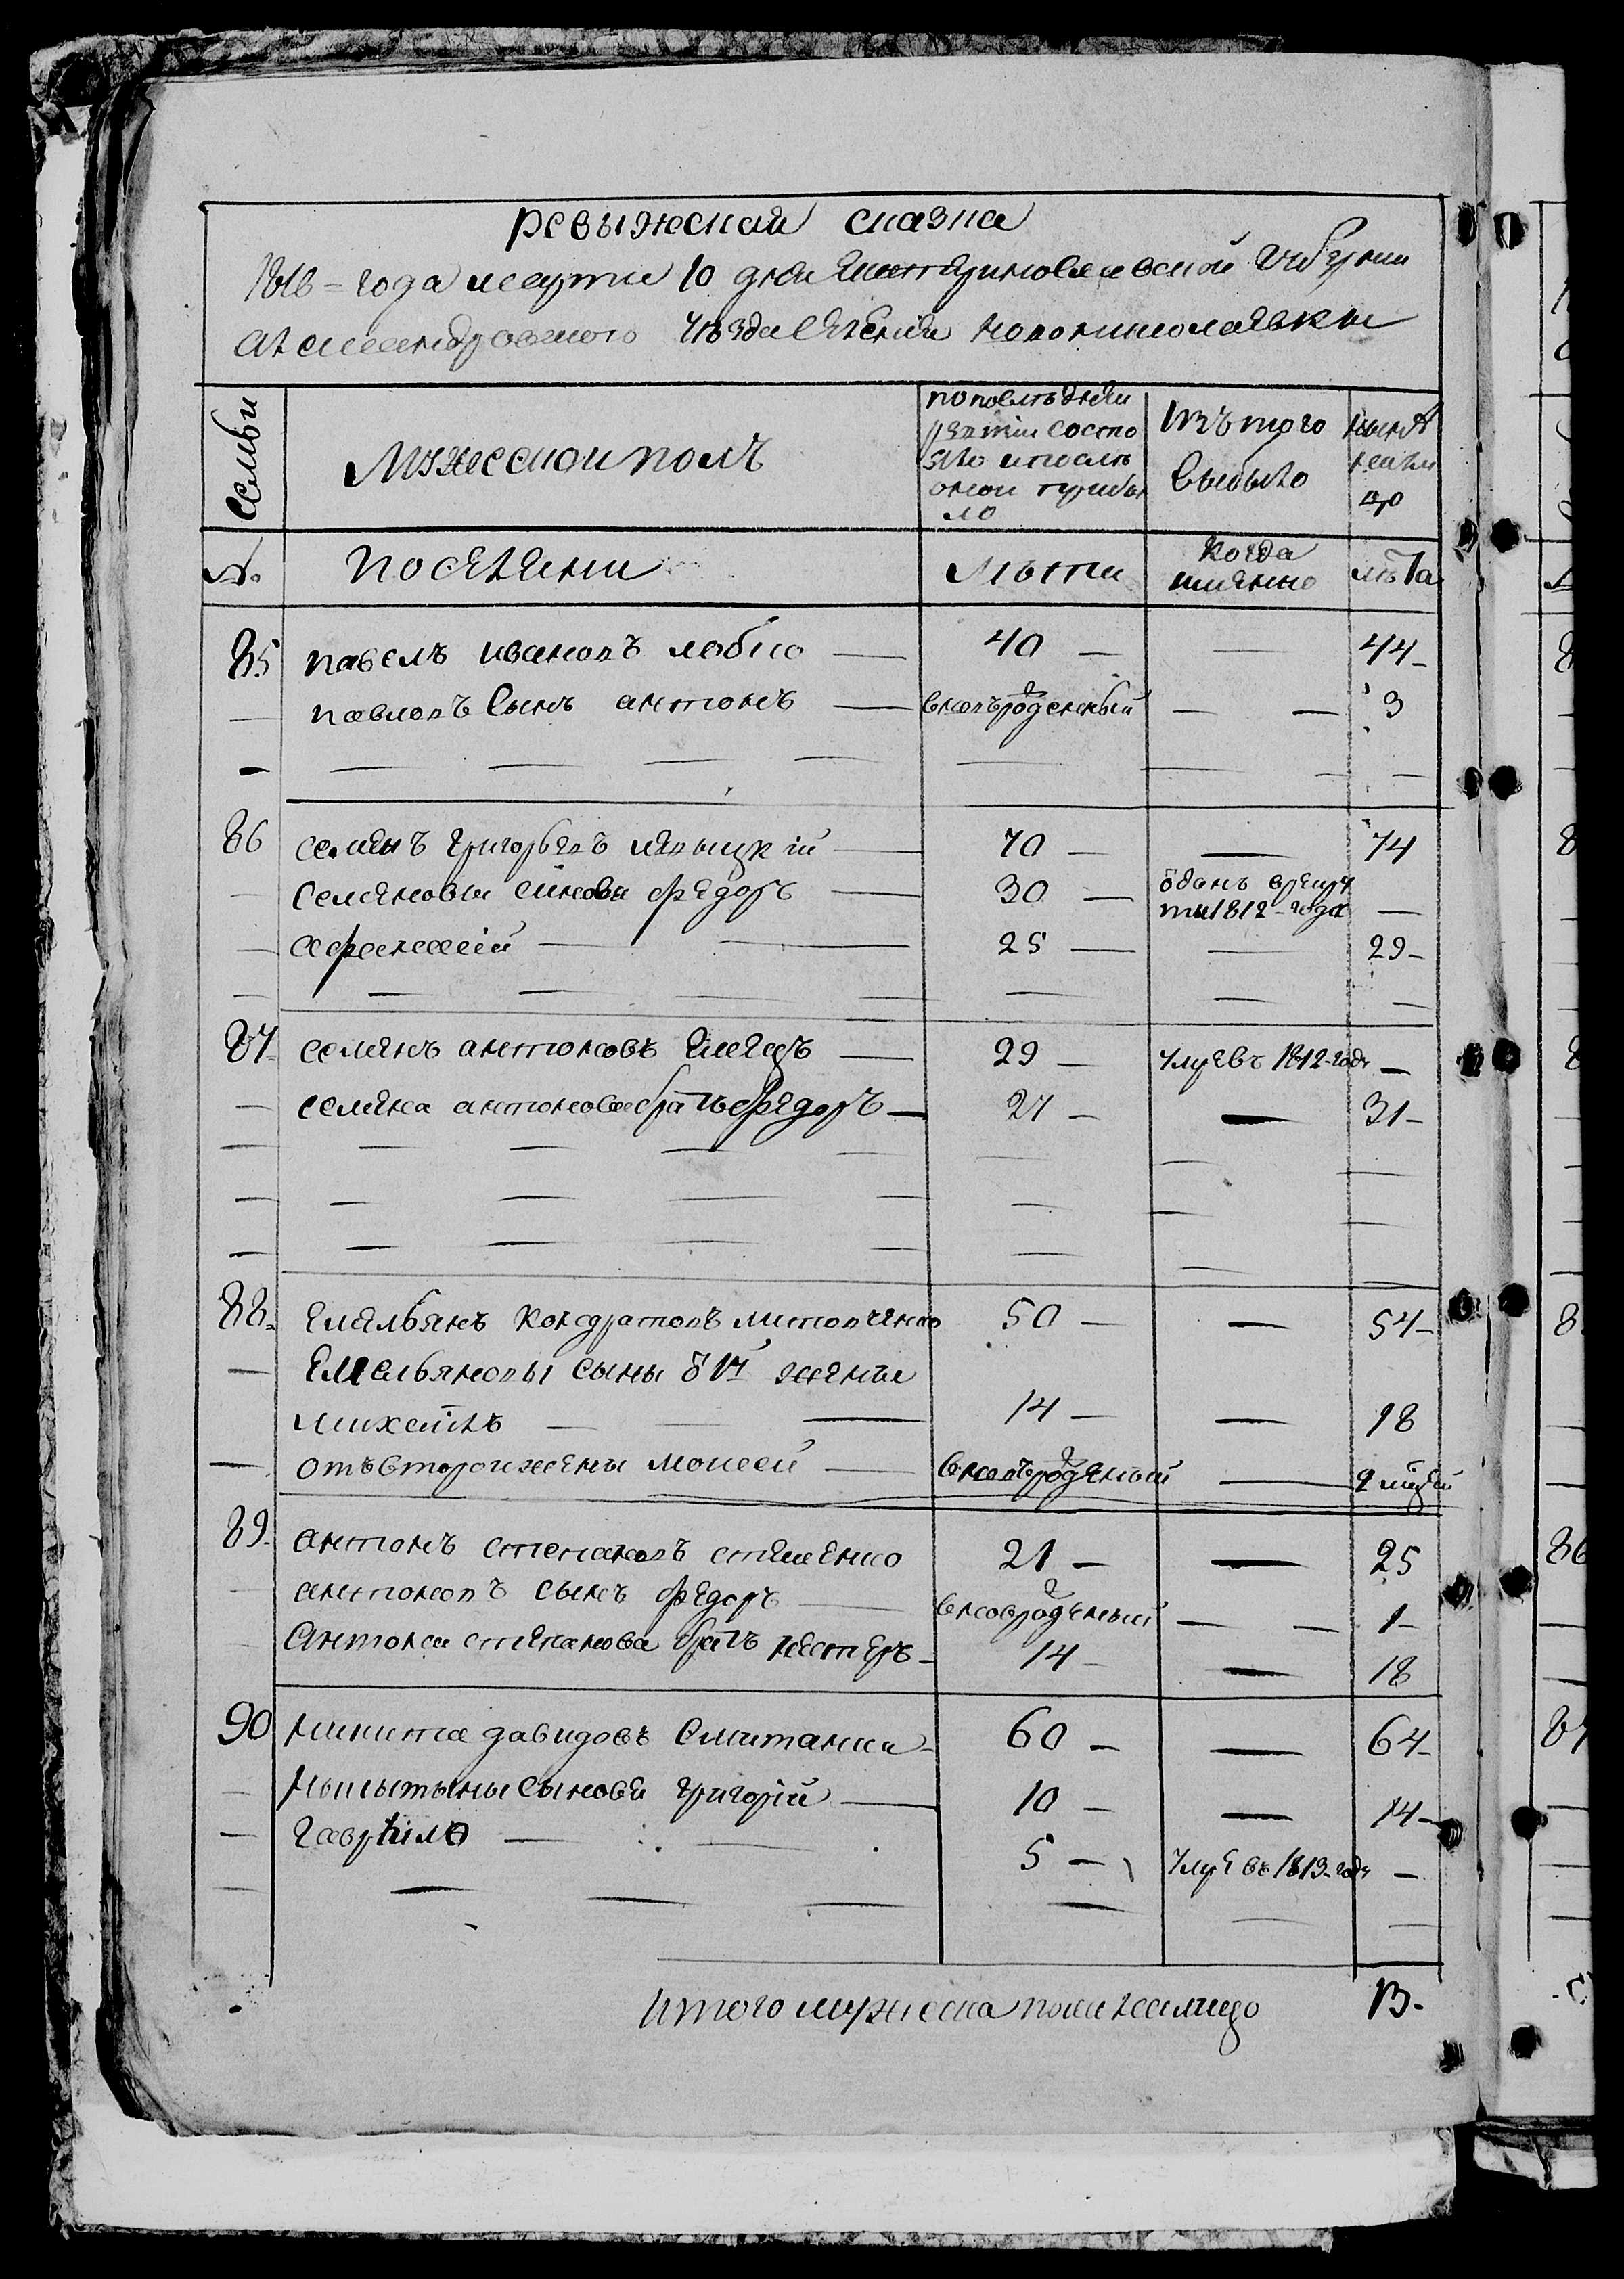 ревыжская сказка
1816 = года марта 10 дня Екатериновславской губернии
александровского уѣзда Селения новониколаевки
Семьи
Мужеской полъ
по последней ревизии состояло и после оной прибыло
Изъ того выбыло
ныне на лицо
№.
поселяни
лѣта
когда имянно
лѣта
85 павелъ ивановъ лобко — 40 — — 44 -
— павловъ Сынъ антонъ — вновъ рожденный — — 3
86 семенъ григорьевъ — 70 — — 74
— семеновы синовя федоръ — 30 — ѿданъ в рекруты 1812 - года —
— афанасий — — 25 — — 29 -
87 семенъ антоновъ — 29 — умре въ 1812 - году —
— семена антонова братъ федоръ — 27 — — 31 -
88. Емельянъ кондратовъ миточенко 50 — — 54 -
— Емельяновы сыны ѿ 1й жены
михаилъ — — — 14 — — 18
— отъ второи жены моисей — вновъ рожденный — 9 мцей
89. антонъ степановъ стешенко 21 — — 25
— антоновъ сынъ федоръ — вновъ рожденный — — 1 -
— Антона степанова братъ нестеръ - 14 - — 18
90 никита давидовъ Смитанка - 60 — — 64 -
— Никытыны Сыновя григорий — 10 — — 14 -
— гаврило — — 5 — умре въ 1813 - году —
итого мужеска пола налицо 13 -